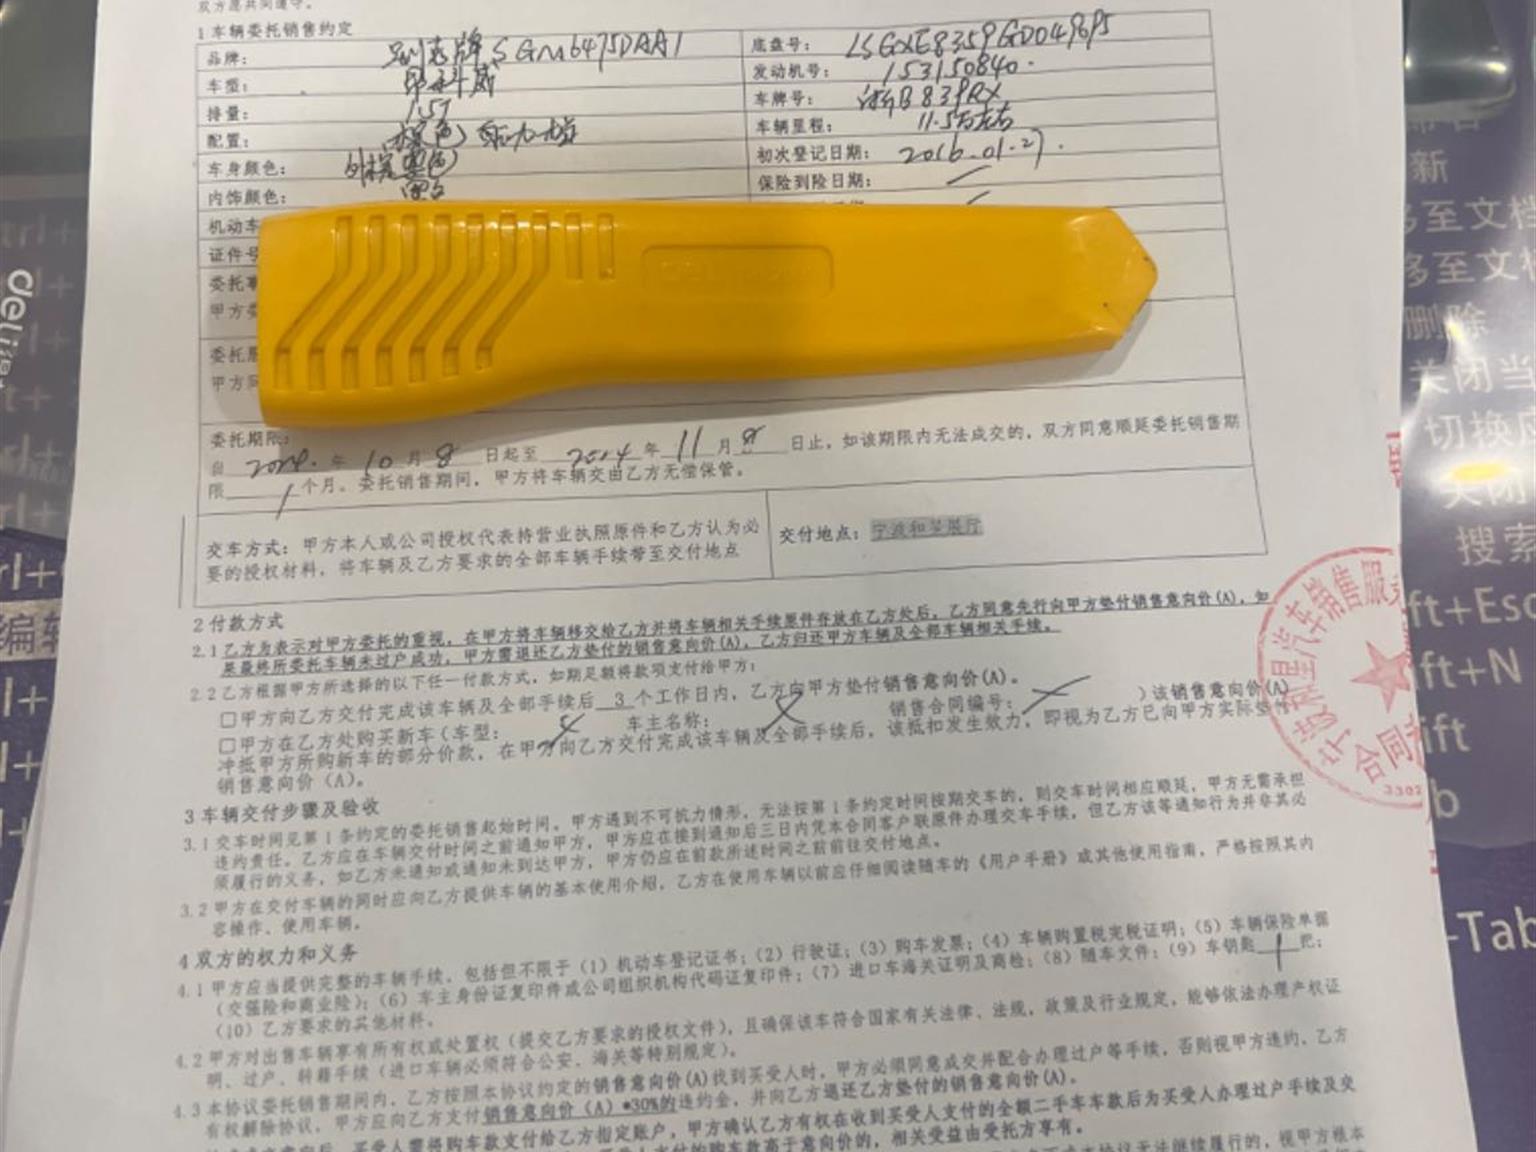 双方愿共同遵守。
1 车辆委托销售约定
品牌： 别克牌SGM6475DAA1 底盘号： LSGXE8359GD049695
车型： 昂科威 发动机号： 153150840
排量： 1.5T 车牌号： 浙B839RX
配置： 车辆里程： 11.5万左右
车身颜色： 初次登记日期： 2016.01.27.
内饰颜色： 保险到险日期：
机动车
证件号
委托事
甲方委
委托
甲方同
委托期限：
自 2024. 年 10 月 8 日起至 2024 年 11 月 8 日止，如该期限内无法成交的，双方同意顺延委托销售期
限 1 个月。委托销售期间，甲方将车辆交由乙方无偿保管。
交车方式：甲方本人或公司授权代表持营业执照原件和乙方认为必
要的授权材料，将车辆及乙方要求的全部车辆手续带至交付地点
交付地点：宁波和星展厅
2 付款方式
2.1 乙方为表示对甲方委托的重视，在甲方将车辆移交给乙方并将车辆相关手续原件存放在乙方处后，乙方同意先行向甲方垫付销售意向价(A)，如
果最终所委托车辆未过户成功，甲方需退还乙方垫付的销售意向价(A)，乙方归还甲方车辆及全部车辆相关手续。
2.2 乙方根据甲方所选择的以下任一付款方式，如期足额将款项支付给甲方：
□甲方向乙方交付完成该车辆及全部手续后 3 个工作日内，乙方向甲方垫付销售意向价(A)。
□甲方在乙方处购买新车（车型： 车主名称： 销售合同编号： ）该销售意向价(A)
冲抵甲方所购新车的部分价款，在甲方向乙方交付完成该车辆及全部手续后，该抵扣发生效力，即视为乙方已向甲方实际垫付
销售意向价（A）。
3 车辆交付步骤及验收
3.1 交车时间见第1条约定的委托销售起始时间。甲方遇到不可抗力情形，无法按第1条约定时间按期交车的，则交车时间相应顺延，甲方无需承担
违约责任。乙方应在车辆交付时间之前通知甲方，甲方应在接到通知后三日内凭本合同客户联原件办理交车手续，但乙方该等通知行为并非其必
须履行的义务，如乙方未通知或通知未到达甲方，甲方仍应在前款所述时间之前前往交付地点。
3.2 甲方在交付车辆的同时应向乙方提供车辆的基本使用介绍，乙方在使用车辆以前应仔细阅读随车的《用户手册》或其他使用指南，严格按照其内
容操作、使用车辆。
4 双方的权力和义务
4.1 甲方应当提供完整的车辆手续，包括但不限于（1）机动车登记证书；（2）行驶证；（3）购车发票；（4）车辆购置税完税证明；（5）车辆保险单据
（交强险和商业险）；（6）车主身份证复印件或公司组织机构代码证复印件；（7）进口车海关证明及商检；（8）随车文件；（9）车钥匙 1 把；
（10）乙方要求的其他材料。
4.2 甲方对出售车辆享有所有权或处置权（提交乙方要求的授权文件），且确保该车符合国家有关法律、法规，政策及行业规定，能够依法办理产权证
明、过户、转籍手续（进口车辆必须符合公安、海关等特别规定）。
4.3 本协议委托销售期间内，乙方按照本协议约定的销售意向价(A)找到买受人时，甲方必须同意成交并配合办理过户等手续，否则视甲方违约，乙方
有权解除协议，甲方应向乙方支付销售意向价（A）*30%的违约金，并向乙方退还乙方垫付的销售意向价(A)。
买受人需将购车款支付给乙方指定账户，甲方确认乙方有权在收到买受人支付的全额二手车车款后为买受人办理过户手续及交
支付的购车款高于意向价的，相关受益由受托方享有。
本协议无法继续履行的，视甲方根本
汽车销售服
合同
3302
deli
新
移至文档
移至文
删除
关闭当
切换
关闭
搜索
ft+Esc
ft+N
-Tab
编辑